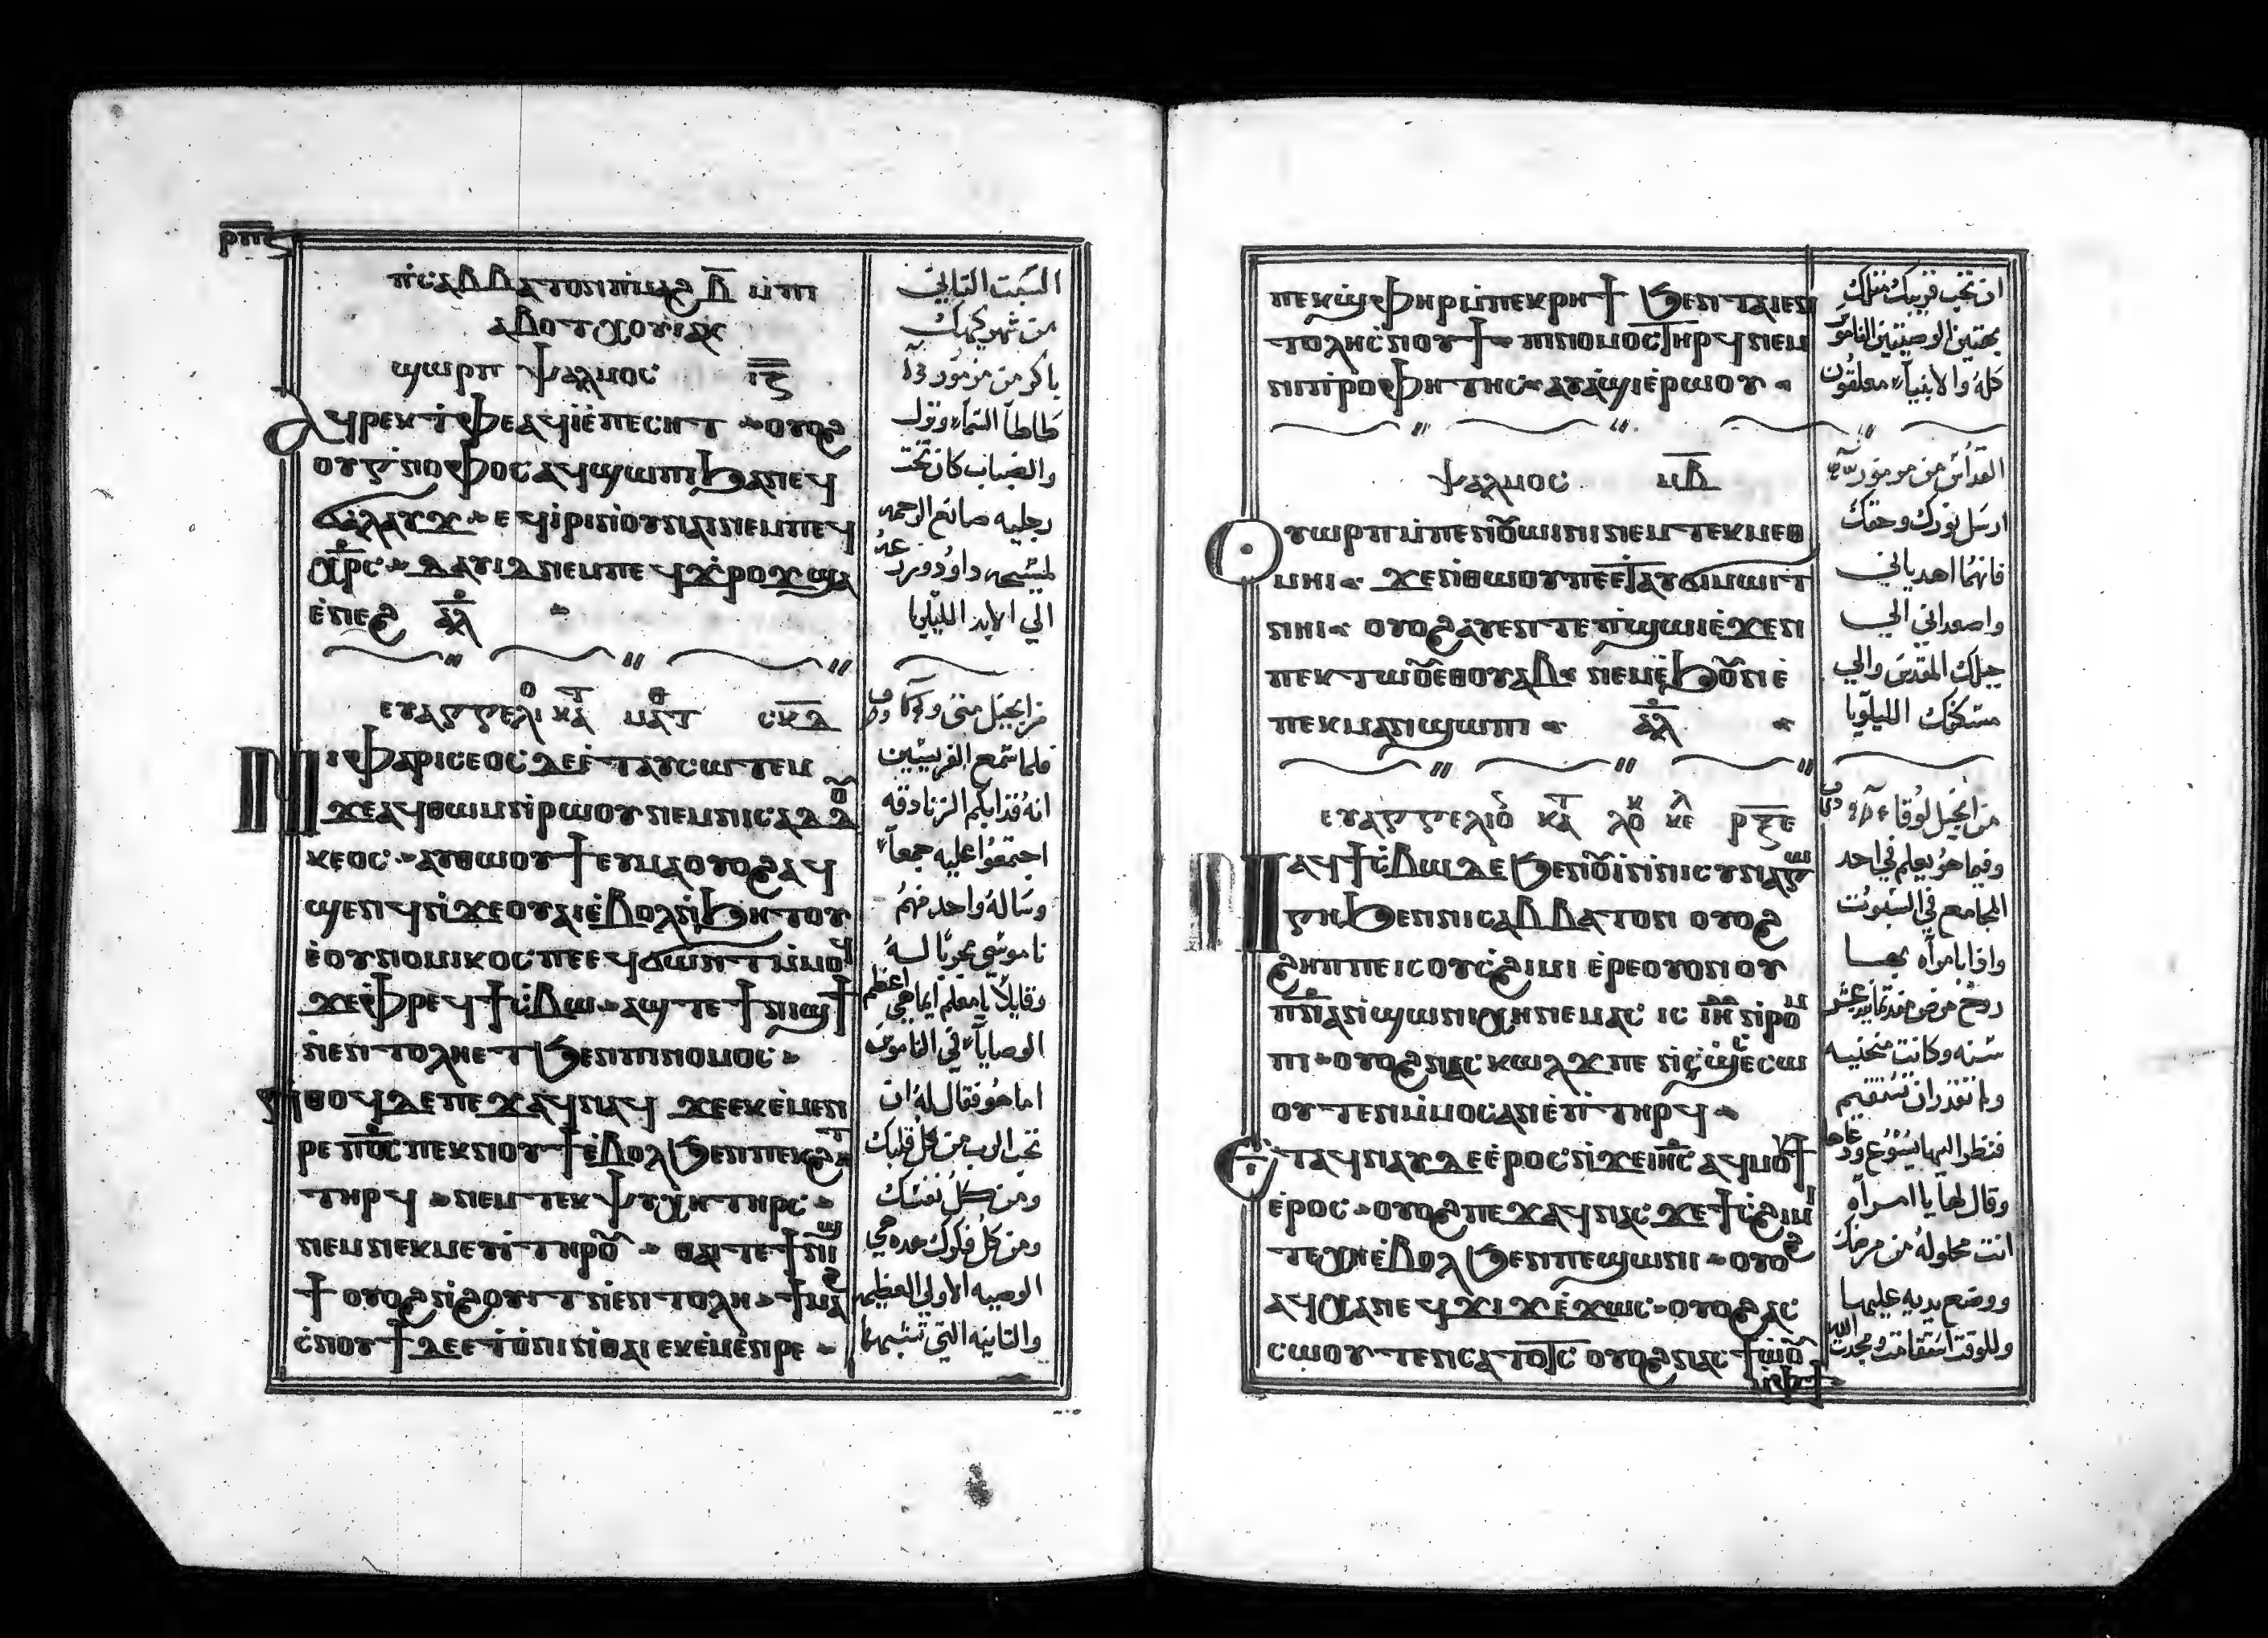 ⲣⲡⲋ
ⲡⲥⲁⲃⲃⲁⲧⲟⲛ ⲙⲙⲁϩ ⲃ̅ ⲙⲡⲓ
ⲁⲃⲟⲧ ⲭⲟⲓⲁⲕ
ϣⲱⲣⲡ ⲯⲁⲗⲙⲟⲥ ⲓⲍ
ⲁϥⲣⲉⲕ ⲧⲫⲉ ⲁϥⲓ ⲉⲡⲉⲥⲏⲧ ⲟⲩⲟϩ
ⲟⲩⲅⲛⲟⲫⲟⲥ ⲁϥϣⲱⲡⲓ ϧⲁ ⲛⲉϥ
ϭⲁⲗⲁⲩϫ ⲉϥⲓⲣⲓ ⲛⲟⲩⲛⲁⲓ ⲛⲉⲙ ⲡⲉϥ
ⲭⲣⲥ ⲇⲁⲩⲓⲇ ⲛⲉⲙ ⲡⲉϥϫⲣⲟϫ ϣⲁ
ⲉⲛⲉϩ ⲁⲗ
ⲉⲩⲁⲅⲅⲉⲗⲓⲟ ⲕⲁⲧ ⲙⲁⲧⲑ ⲥⲕⲇ
ⲛⲓⲫⲁⲣⲓⲥⲉⲟⲥ ⲇⲉ ⲉⲧⲁⲩⲥⲱⲧⲉⲙ
ϫⲉ ⲁϥⲑⲱⲙ ⲛⲣⲱⲟⲩ ⲛⲛⲓⲥⲁⲇⲇⲟⲩ
ⲕⲉⲟⲥ ⲁⲩⲑⲱⲟⲩϯ ⲉⲩⲙⲁ ⲟⲩⲟϩ ⲁϥ
ϣⲉⲛϥ ⲛϫⲉ ⲟⲩⲁⲓ ⲉⲃⲟⲗ ⲛϧⲏⲧⲟⲩ
ⲉⲟⲩⲛⲟⲙⲓⲕⲟⲥ ⲡⲉ ⲉϥϭⲱⲛⲧ ⲙⲙⲟϥ
ϫⲉ ⲫⲣⲉϥϯⲥⲃⲱ ⲁϣ ⲧⲉ ϯⲛⲓϣϯ
ⲛⲉⲛⲧⲟⲗⲏ ⲉⲧϧⲉⲛ ⲡⲓⲛⲟⲙⲟⲥ
ⲛⲑⲟϥ ⲇⲉ ⲡⲉϫⲁϥ ⲛⲁϥ ϫⲉ ⲉⲕⲉⲙⲉⲛ
ⲣⲉ ⲡⲟⲥ ⲡⲉⲕⲛⲟⲩϯ ⲉⲃⲟⲗ ϧⲉⲛ ⲡⲉⲕϩⲏⲧ
ⲧⲏⲣϥ ⲛⲉⲙ ⲧⲉⲕⲯⲩⲭⲏ ⲧⲏⲣⲥ
ⲛⲉⲙ ⲛⲉⲕⲙⲉⲩⲓ ⲧⲏⲣⲟⲩ ⲑⲁⲓ ⲧⲉ ϯⲛⲓϣ
ϯ ⲟⲩⲟϩ ⲛϩⲟⲩⲓⲧ ⲛⲉⲛⲧⲟⲗⲏ ϯⲙⲁϩ
ⲥⲛⲟⲩϯ ⲇⲉ ⲉⲧⲟⲛⲓ ⲛⲑⲁⲓ ⲉⲕⲉⲙⲉⲛⲣⲉ
السبت التاني
من شهر كيهك
باكر من مزمور
طاطا السما ونزل
والضباب كان تحت
رجليه صانع الرحمه
لمسيحه داوود وزرعه
الي الابد الليلويا
من انجيل متي
فلما سمع الفريسيين
انه قد ابكم الزنادقه
اجتمعوا عليه جمعاً
وساله واحد منهم
ناموسي مجربا له
وقايلا يا معلم ايما هي اعظم
الوصايا في الناموس
اما هو فقال له ان
تحب الرب من كل قلبك
ومن كل نفسك
ومن كل فكرك هده هي
الوصيه الاولي العظيمه
والتانيه التي تشبهها
ⲡⲉⲕϣⲫⲏⲣ ⲙⲡⲉⲕⲣⲏϯ ϧⲉⲛ ⲧⲁⲓⲉⲛ
ⲧⲟⲗⲏ ⲥⲛⲟⲩϯ ⲡⲓⲛⲟⲙⲟⲥ ⲧⲏⲣϥ ⲛⲉⲙ
ⲛⲓⲡⲣⲟⲫⲏⲧⲏⲥ ⲁⲩⲁϣⲓ ⲉⲣⲱⲟⲩ
ⲯⲁⲗⲙⲟⲥ ⲙⲃ
ⲟⲩⲱⲣⲡ ⲙⲡⲉⲛⲟⲩⲱⲓⲛⲓ ⲛⲉⲙ ⲧⲉⲕⲙⲉⲑ
ⲙⲏⲓ ϫⲉ ⲛⲑⲱⲟⲩ ⲡⲉⲧⲁⲩϭⲓⲙⲱⲓⲧ
ⲛⲏⲓ ⲟⲩⲟϩ ⲁⲩⲉⲛⲧ ⲉⲡϣⲱⲓ ⲉϫⲉⲛ
ⲡⲉⲕⲧⲱⲟⲩ ⲉⲑⲟⲩⲁⲃ ⲛⲉⲙ ⲉϧⲟⲩⲛ ⲉ
ⲡⲉⲕⲙⲁⲛϣⲱⲡⲓ ⲁⲗ
ⲉⲩⲁⲅⲅⲉⲗⲓⲟ ⲕⲁⲧ ⲗⲟⲩⲕ ⲕⲉ ⲣⲝⲉ
ⲛⲁϥϯⲥⲃⲱ ⲇⲉ ϧⲉⲛ ⲟⲩⲓ ⲛⲛⲓⲥⲩⲛⲁⲅⲱ
ⲅⲏ ϧⲉⲛ ⲛⲓⲥⲁⲃⲃⲁⲧⲟⲛ ⲟⲩⲟϩ
ϩⲏⲡⲡⲉ ⲓⲥ ⲟⲩⲥϩⲓⲙⲓ ⲉⲣⲉ ⲟⲩⲟⲛ ⲟⲩ
ⲡⲛⲁ ⲛϣⲱⲛⲓ ⲭⲏ ⲛⲉⲙⲁⲥ ⲓⲥ ⲓⲏ ⲛⲣⲟⲙ
ⲡⲓ ⲟⲩⲟϩ ⲛⲁⲥⲕⲱⲗϫ ⲡⲉ
ⲟⲩⲧⲉⲛ ⲙⲙⲟⲥ ⲁⲛ ⲉⲡⲧⲏⲣϥ
ⲉⲧⲁϥⲛⲁⲩ ⲇⲉ ⲉⲣⲟⲥ ⲛϫⲉ ⲓⲏⲥ ⲁϥⲙⲟⲩϯ
ⲉⲣⲟⲥ ⲟⲩⲟϩ ⲡⲉϫⲁϥ ⲛⲁⲥ ϫⲉ ϯⲥϩⲓⲙⲓ
ⲧⲉⲭⲏ ⲉⲃⲟⲗ ϧⲉⲛ ⲡⲉϣⲱⲛⲓ ⲟⲩⲟϩ
ⲁϥⲭⲁ ⲛⲉϥϫⲓϫ ⲉϫⲱⲥ ⲟⲩⲟϩ ⲁⲥ
ⲥⲱⲟⲩⲧⲉⲛ ⲥⲁⲧⲟⲧⲥ ⲟⲩⲟϩ ⲛⲁⲥϯⲱⲟⲩ
ⲙⲫϯ
ان تحب قريبك متلك
بهتين الوصيتين الناموس
كله والانبيا معلقون
القداس من مزمور
ارسل نورك وحقك
فانهما اهدياني
واصعداني الي
جبلك المقدس والي
مسكنك الليلويا
من انجيل لوقا
وفيما هو يعلم في احد
المجامع في السبوت
واذا بامراه بها
روح مرض منذ تمانيه عشر
سنه وكانت منحنيه
ولا تقدر ان تستقيم
فنظر اليها يسوع ودعاها
وقال لها يا امراه
انت محلوله من مرضك
ووضع يديه عليها
وللوقت استقامت ومجدت الله